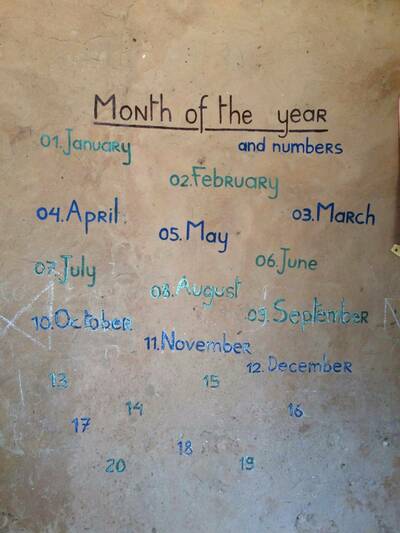 Month of the year
and numbers
01. January
02. February
03. March
04. April
05. May
06. June
07. July
08. August
09. September
10. October
11. November
12. December
13
14
15
16
17
18
19
20